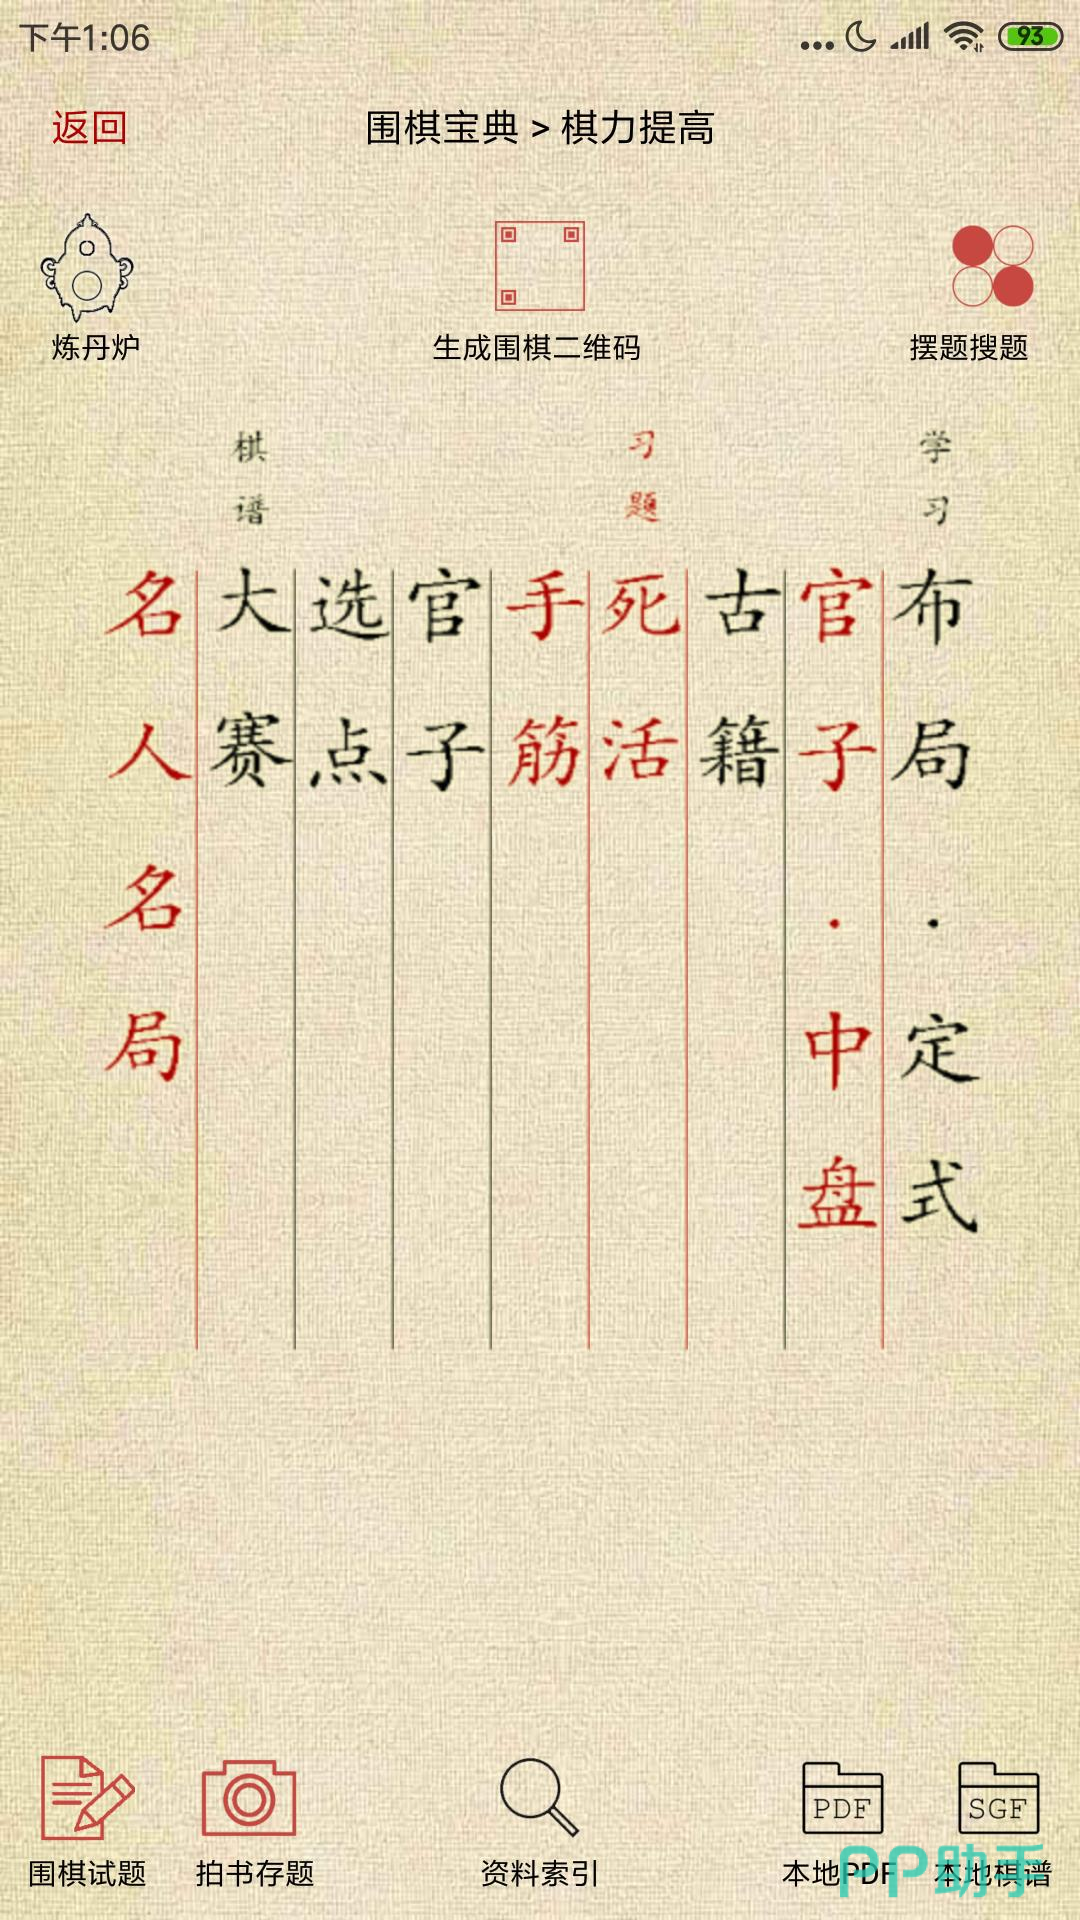 下午1:06
93
返回
围棋宝典 > 棋力提高
炼丹炉
生成围棋二维码
摆题搜题
学习
习题
棋谱
布局·定式
官子·中盘
古籍
死活
手筋
官子
选点
大赛
名人名局
PDF
SGF
围棋试题
拍书存题
资料索引
本地PDF
本地棋谱
PP助手